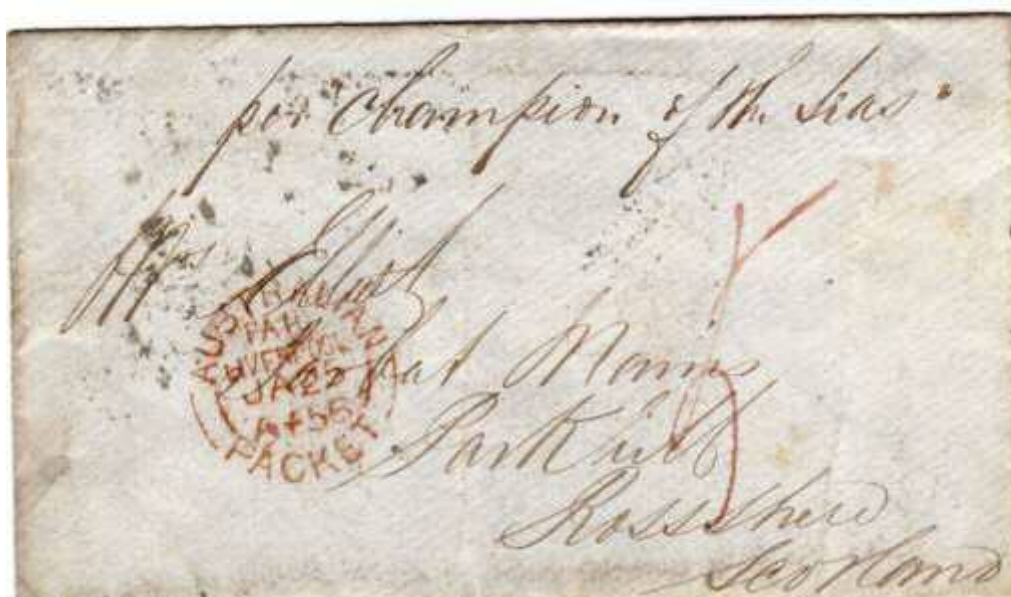 per Champion of the Seas"
Mrs. Elliot
at Manis
Parkhill
Rossshire
Scotland
AUSTRALIAN
PAID
LIVERPOOL
JA 27
PACKET